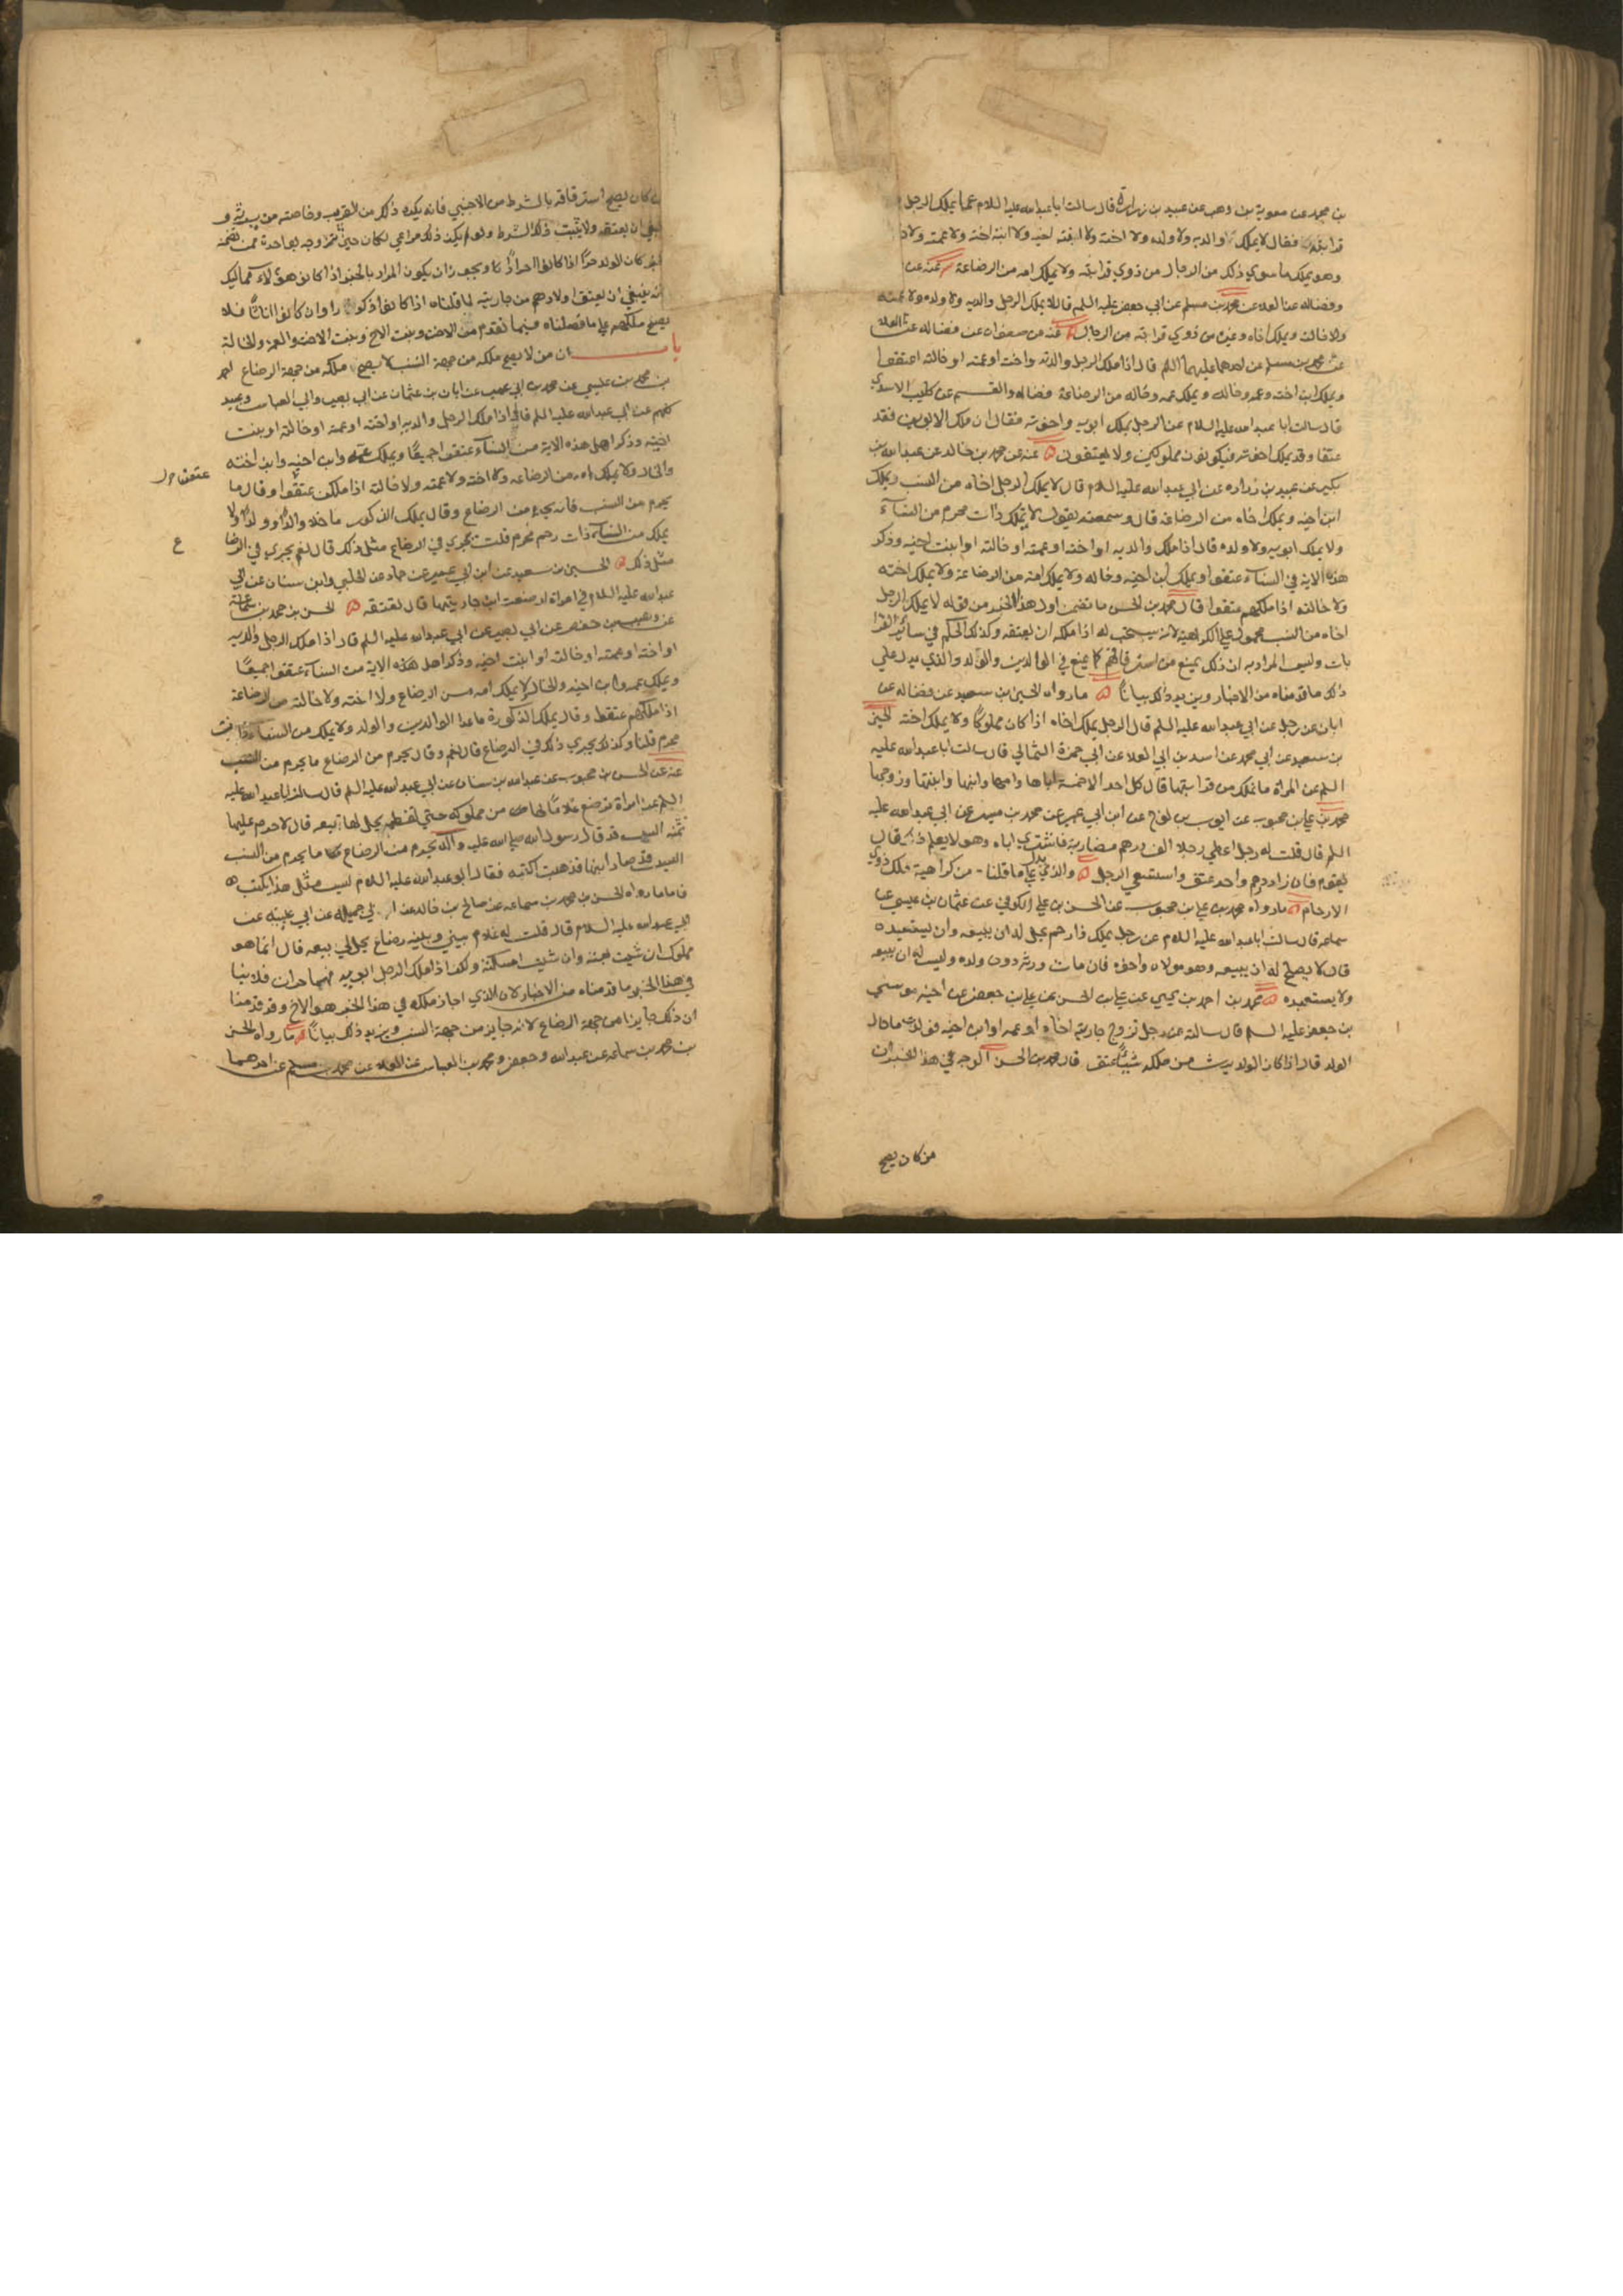 بن محمد عن معوية بن وهب عن عبيد بن زرارة قال سالت ابا عبد الله عليه السلام عما يملك الرجل من
قرابته فقال لا يملك والديه ولا ولده ولا اخته ولا ابنة اخيه ولا ابنة اخته ولا عمته ولا
وهو يملك ما سوي ذلك من الرجال من ذوي قرابته ولا يملك امه من الرضاعة عنه عن
وفضاله عن العلا عن محمد بن مسلم عن ابي جعفر عليه السلم قال لا يملك الرجل والديه ولا ولده ولا عمته
ولا خالته ويملك اخاه وغيره من ذوي قرابته من الرجال عنه عن صفوان عن فضاله عن العلا
عن محمد بن مسلم عن احدهما عليهما السلم قال اذا ملك الرجل والديه واخته او عمته او خالته اعتقوا
ويملك ابن اخته وعمه وخاله ويملك عمه وخاله من الرضاعة فضاله والقسم عن كليب الاسدي
قال سالت ابا عبد الله عليه السلام عن الرجل يملك ابويه واخوته فقال ان ملك الابوين فقد
عتقا وقد يملك اخوته فيكونون مملوكين ولا يعتقون عنه عن محمد بن خالد عن عبد الله بن
بكير عن عبيد بن زراره عن ابي عبد الله عليه السلام قال لا يملك الرجل اخاه من النسب ويملك
ابن اخيه ويملك اخاه من الرضاعة قال وسمعته يقول لا يملك ذات محرم من النساء
ولا يملك ابويه ولا ولده قال اذا ملك والديه او اخته او عمته او خالته او بنت اخيه وذكر
هذه الاية في النساء عتقوا ويملك ابن اخيه وخاله ولا يملك امه من الرضاعة ولا يملك اخته
ولا خالته اذا ملكهم عتقوا قال محمد بن الحسن ما تضمن اول هذا الخبر من قوله لا يملك الرجل
اخاه من النسب محمول علي الكراهية لانه يستحب له اذا ملكه ان يعتقه وكذلك الحكم في سائر القرا
بات وليس المراد به ان ذلك يمنع من استرقاقهم كما يمنع في الوالدين والولد والذي يدل علي
ذلك ما قدمناه من الاخبار ويزيد ذلك بيانا ما رواه الحسين بن سعيد عن فضاله عن
ابان عن رجل عن ابي عبد الله عليه السلم قال الرجل يملك اخاه اذا كان مملوكا ولا يملك اخته الحسين
بن سعيد عن ابي محمد عن اسد بن ابي العلا عن ابي حمزة الثمالي قال سالت ابا عبد الله عليه
السلم عن المراة ما تملك من قرابتها قال كل احد الا خمسة اباها وامها وابنها وابنتها وزوجها
محمد بن علي بن محبوب عن ايوب بن نوح عن ابن ابي عمير عن محمد بن ميسر عن ابي عبد الله عليه
السلم قال قلت له رجل اعطي رجلا الف درهم مضاربة فاشتري اباه وهو لا يعلم ذلك قال
يقوم فان زاد درهم واحد عتق واستسعي الرجل والذي يدل علي ما قلنا من كراهية ملك ذوي
الارحام ما رواه محمد بن علي بن محبوب عن الحسن بن علي الكوفي عن عثمان بن عيسي عن
سماعه قال سالت ابا عبد الله عليه السلام عن رجل يملك ذا رحم يحل له ان يبيعه وان يستعبده
قال لا يصلح له ان يبيعه وهو مولاه واخوه فان مات ورثه دون ولده وليس له ان يبيعه
ولا يستعبده محمد بن احمد بن يحيي عن علي بن الحسن عن علي بن جعفر عن اخيه موسي
بن جعفر عليه السلم قال سالته عن رجل تزوج جارية اخاه او عمه او ابن اخيه فولدت ما حال
الولد قال اذا كان الولد يرث من ملكه شيئا عتق قال محمد بن الحسن الوجه في هذا الخبر ان
من كان يصح
من كان يصح استرقاقه بالشرط من الاجنبي فانه يكره ذلك من القريب
ينبغي ان يعتقه ولا يثبت ذلك الشرط ولو لم يكن ذلك مراعي لكان حين تزوجه بواحدة ممن تضمنه
الخبر كان الولد حرا اذا كانوا احرارا ويجوز ان يكون المراد بالخبر اذا كانوا هولاء مماليك
انه ينبغي ان يعتق اولادهم من جاريته لما قلناه اذا كانوا ذكورا وان كانوا اناثا فلا
يصح ملكهم علي ما فصلناه فيما تقدم من الاخت وبنت الاخ وبنت الاخت والعمة والخالة
باب ان من لا يصح ملكه من جهة النسب لا يصح ملكه من جهة الرضاع احمد
بن محمد بن عيسي عن محمد بن ابي عمير عن ابان بن عثمان عن ابي بصير وابي العباس وعبيد
كلهم عن ابي عبد الله عليه السلم قال اذا ملك الرجل والديه او اخته او عمته او خالته او بنت
اخيه وذكر اهل هذه الاية من النساء عتقوا جميعا ويملك عمه وابن اخيه وابن اخته
والخال ولا يملك امه من الرضاعه ولا اخته ولا عمته ولا خالته اذا ملكن عتقوا وقال ما
عتقن ول
يحرم من النسب فانه يحرم من الرضاع وقال يملك الذكور ما خلا والدا وولدا ولا
يملك من النساء ذات رحم محرم قلت يجري في الرضاع مثل ذلك قال نعم يجري في الرضا
ع
مثل ذلك الحسين بن سعيد عن ابن ابي عمير عن حماد عن الحلبي وابن سنان عن ابي
عبد الله عليه السلام في امراة ارضعت ابن جاريتها قال تعتقه الحسن بن محمد بن سماعة
عن وهيب بن حفص عن ابي بصير عن ابي عبد الله عليه السلم قال اذا ملك الرجل والديه
او اخته او عمته او خالته او ابنت اخيه وذكر اهل هذه الاية من النساء عتقوا جميعا
ويملك عمه وابن اخيه والخال ولا يملك امه من الرضاع ولا اخته ولا خالته من الرضاعة
اذا ملكهم عتقوا وقال يملك الذكورة ما عدا الوالدين والولد ولا يملك من النساء ذات
محرم قلنا وكذلك يجري ذلك في الرضاع قال نعم وقال يحرم من الرضاع ما يحرم من النسب
عنه عن الحسن بن محبوب عن عبد الله بن سنان عن ابي عبد الله عليه السلم قال سالت ابا عبد الله عليه
السلم عن امراة ترضع غلاما لها من مملوكه حتي تفطمه يحل لها بيعه قال لا حرم عليها
ثمنه اليس قد قال رسول الله صلي الله عليه واله يحرم من الرضاع ما يحرم من النسب
اليس قد صار ابنها فذهبت اكتبه فقال ابو عبد الله عليه السلام ليس مثل هذا يكتب
فاما ما رواه الحسن بن محمد بن سماعه عن صالح بن خالد عن ابي جميله عن ابي عيينه عن
ابي عبد الله عليه السلام قال قلت له غلام بيني وبينه رضاع يحل لي بيعه قال انما هو
مملوك ان شيت بعته وان شيت امسكته ولكن اذا ملك الرجل ابويه فهما حران فلا ينا
في هذا الخبر ما قدمناه من الاخبار لان الذي اجاز ملكه في هذا الخبر هو الاخ وقد قدمنا
ان ذلك جايز من جهة الرضاع لانه جايز من جهة النسب ويزيد ذلك بيانا ما رواه الحسن
بن محمد بن سماعه عن عبد الله وجعفر ومحمد بن العباس عن العلا عن محمد بن مسلم عن احدهما